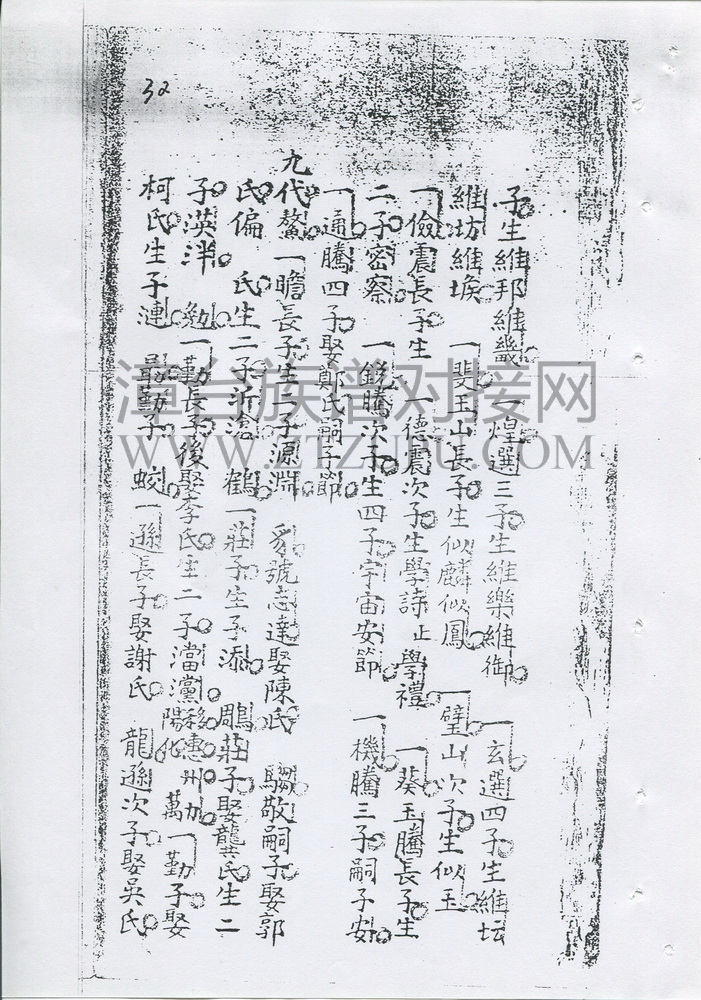 32
子生維邦維畿 一煌選三子生維樂維御 一玄選四子生維坛
維坊維埃 一斐玉山長子生似麟似鳳 一璧山次子生似玉
一儉震長子生 一德震次子生學詩止學禮 一葵玉騰長子生
二子密察 一銳騰次子生四子宇宙安節 一機騰三子嗣子安
一通騰四子娶鄭氏嗣子節
九代鰲一瞻長子生二子源淵 豸號志達娶陳氏 騶敬嗣子娶郭
氏偏 氏生二子沂滄 鶴一莊子生子添 鵰莊子娶龔氏生二
子漢泮 勉一勤長子後娶李氏生二子澢灙移惠州加陽化 萬一勤子娶
柯氏生子漣 勤子 蛟一遜長子娶謝氏 龍遜次子娶吳氏
漳台族谱对接网
WWW.ZTZUPU.COM